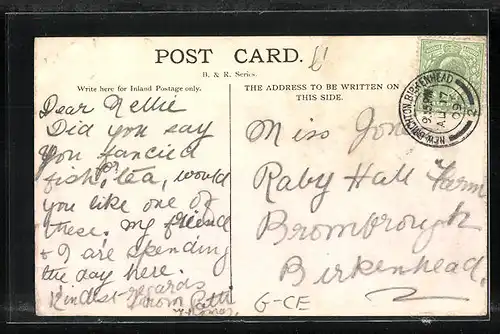 POST CARD.
B. & R. Series.
Write here for Inland Postage only.
THE ADDRESS TO BE WRITTEN ON
THIS SIDE.
Dear Nellie
Did you say
you fancied
fish for tea, would
you like one of
these. my friend
& I are spending
the day here.
Kindest regards
from Patti
Miss Jones
Raby Hall Farm
Brombrough
Birkenhead.
G-CE
NEW BRIGHTON. BIRKENHEAD
AU 17
09
2